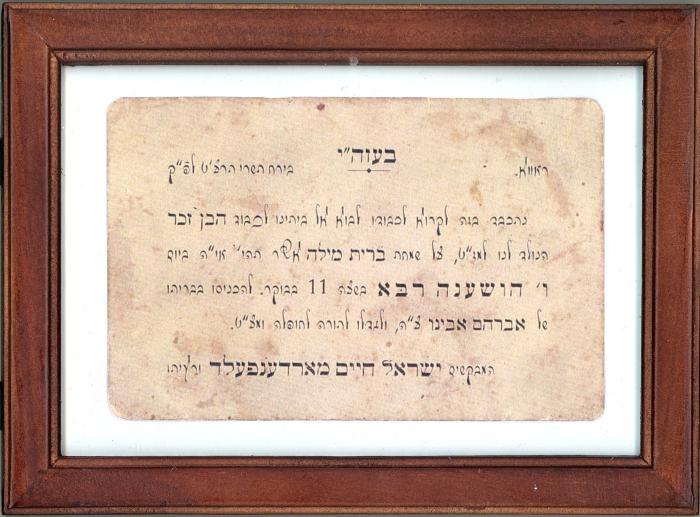 בעזה"י
ראווא. בירח תשרי תרצ"ט לפ"ק
נתכבד בזה לקרוא לכבודו לבוא אל ביתינו לכבוד הבן זכר
הנולד לנו למז"ט, על שמחת ברית מילה אשר תהי' אי"ה ביום
ו' הושענה רבא בשעה 11 בבוקר. להכניסו בבריתו
של אברהם אבינו ע"ה, ולגדלו לתורה לחופה ומע"ט.
המבקשים ישראל חיים מארדענפעלד ורעיתו